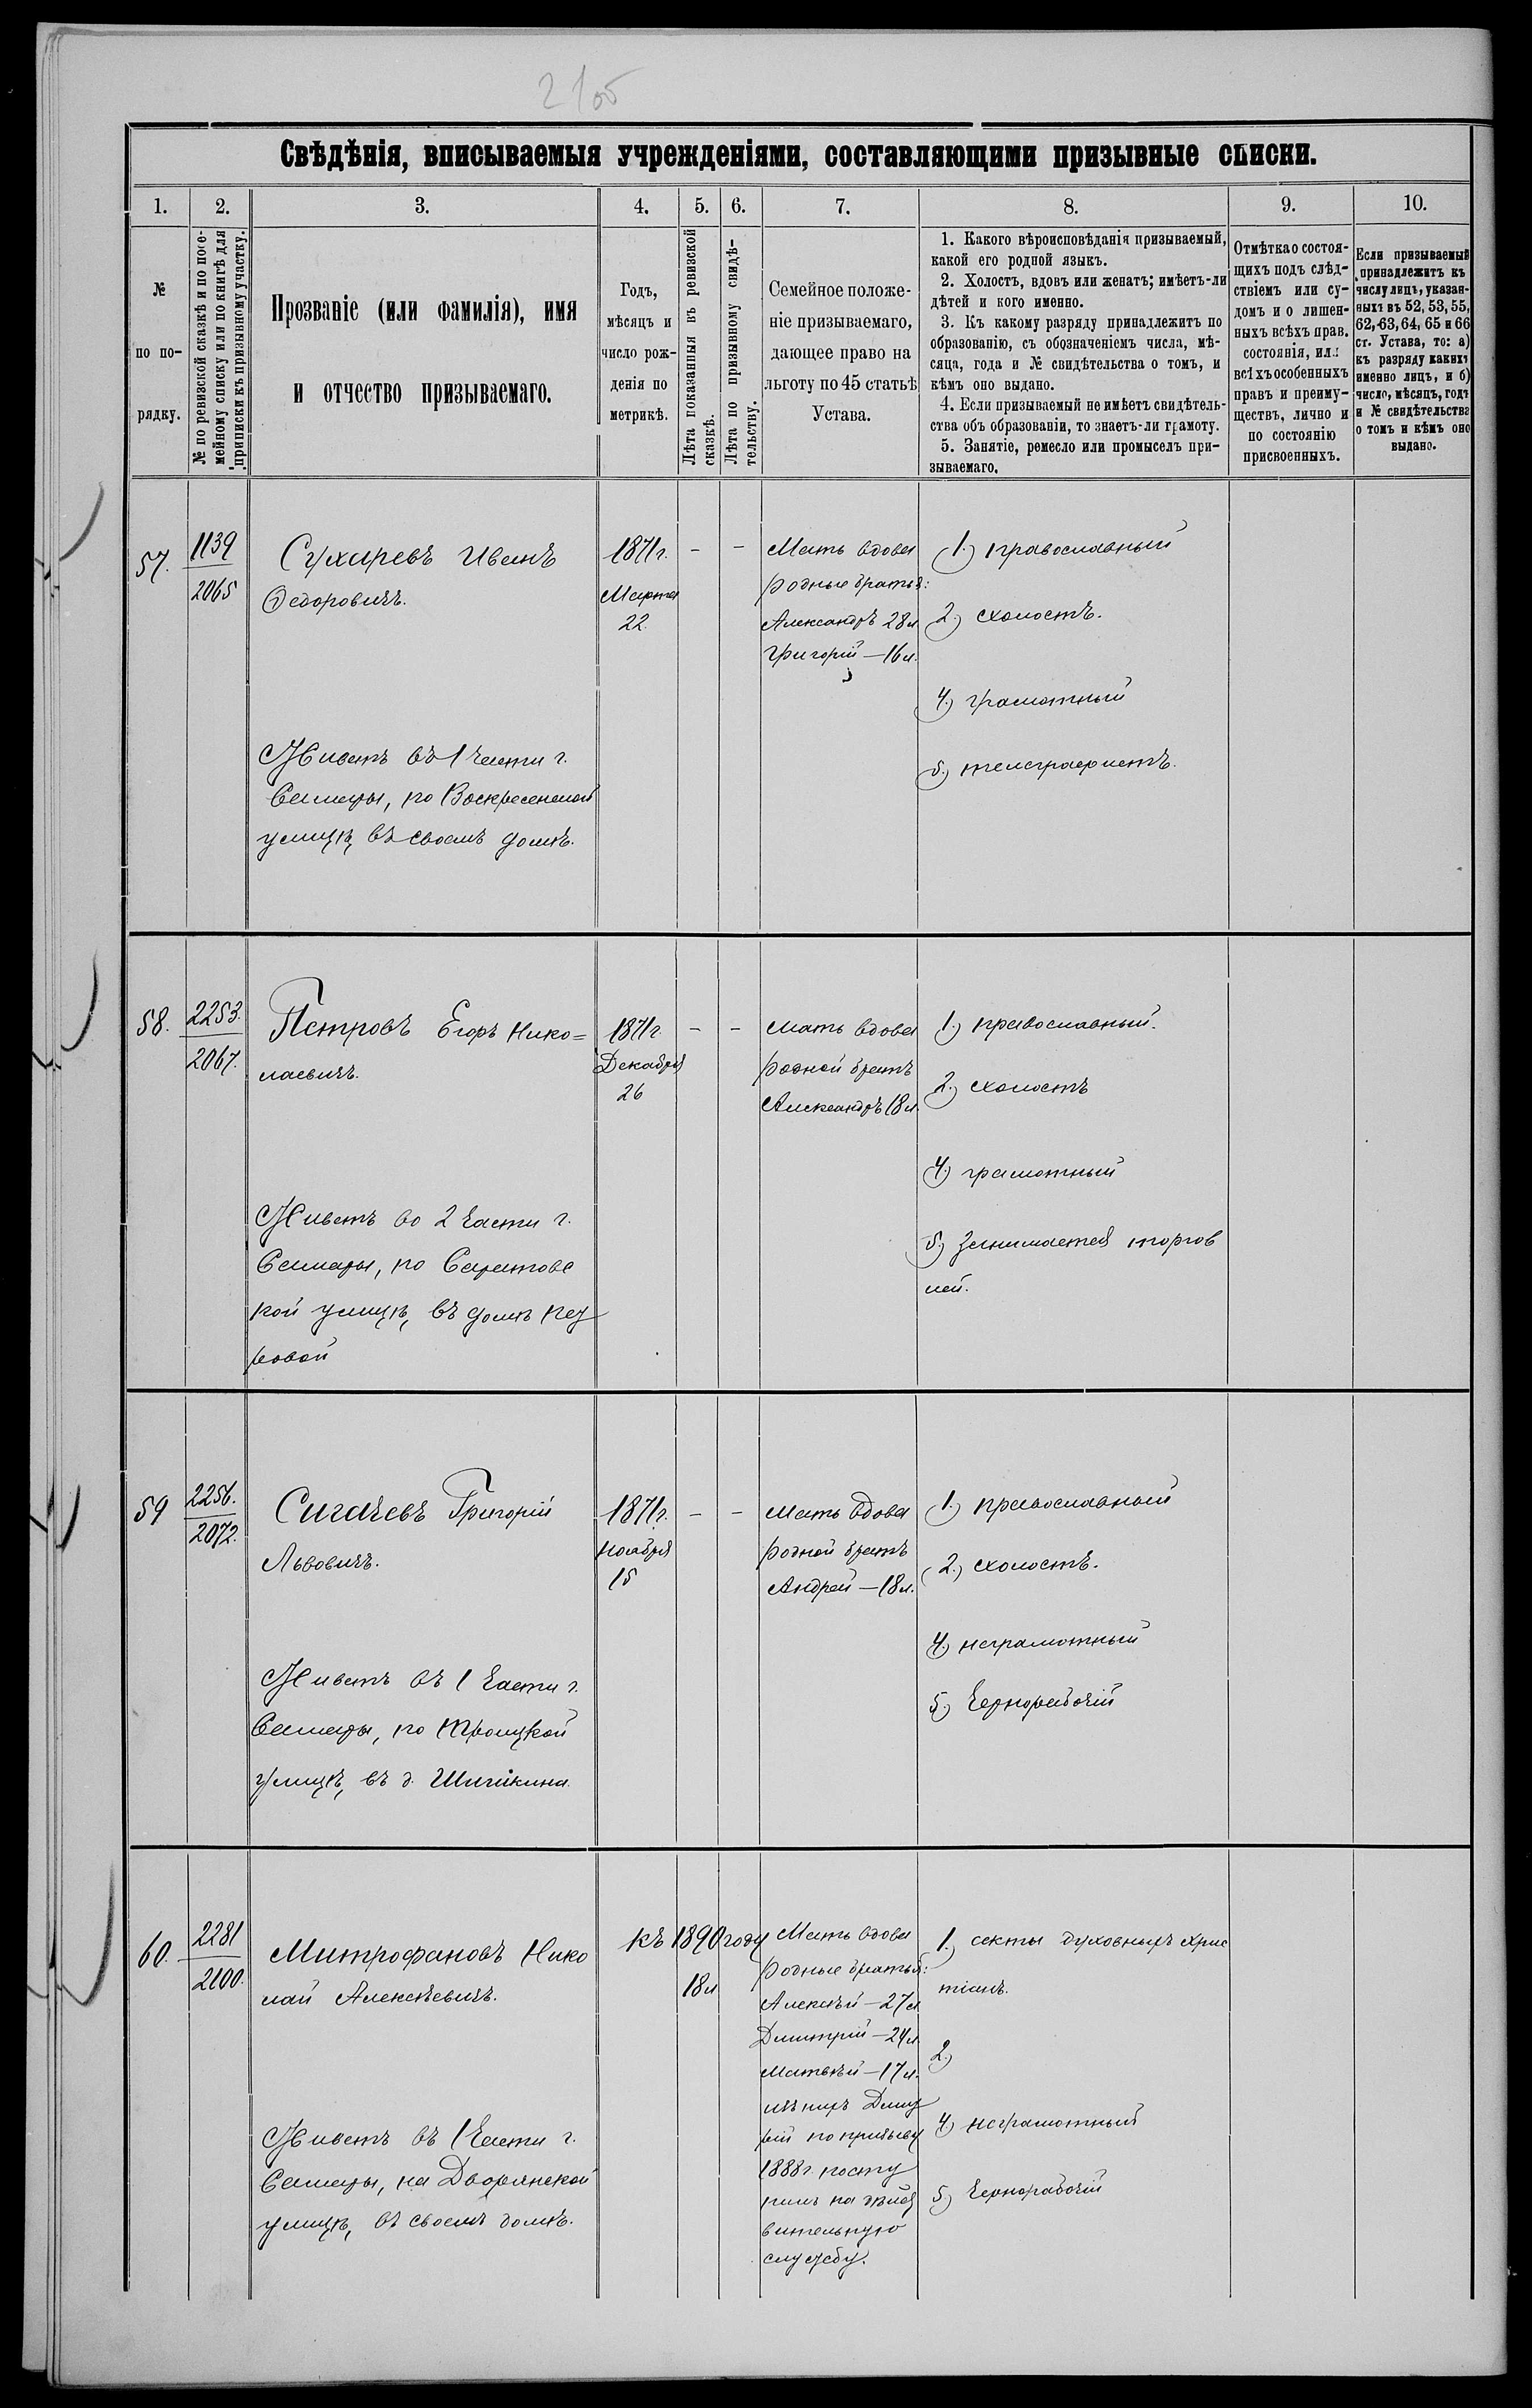 2100
Свѣдѣнія, вписываемыя учрежденіями, составляющими призывные списки.
1.
2.
3.
4.
5.
6.
7.
8.
9.
10.
№
по по-
рядку.
№ по ревизской сказкѣ и по посе-
мейному списку или по книгѣ для
приписки къ призывному участку.
Прозваніе (или фамилія), имя
и отчество призываемаго.
Годъ,
мѣсяцъ и
число рож-
денія по
метрикѣ.
Лѣта показанныя въ ревизской
сказкѣ.
Лѣта по призывному свидѣ-
тельству.
Семейное положе-
ніе призываемаго,
дающее право на
льготу по 45 статьѣ
Устава.
1. Какого вѣроисповѣданія призываемый,
какой его родной языкъ.
2. Холостъ, вдовъ или женатъ; имѣетъ-ли
дѣтей и кого именно.
3. Къ какому разряду принадлежитъ по
образованію, съ обозначеніемъ числа, мѣ-
сяца, года и № свидѣтельства о томъ, и
кѣмъ оно выдано.
4. Если призываемый не имѣетъ свидѣтель-
ства объ образованіи, то знаетъ-ли грамоту.
5. Занятіе, ремесло или промыселъ при-
зываемаго.
Отмѣтка о состоя-
щихъ подъ слѣд-
ствіемъ или су-
домъ и о лишен-
ныхъ всѣхъ правъ
состоянія, или
всѣхъ особенныхъ
правъ и преиму-
ществъ, лично и
по состоянію
присвоенныхъ.
Если призываемый
принадлежитъ къ
числу лицъ, указан-
ныхъ въ 52, 53, 55,
62, 63, 64, 65 и 66
ст. Устава, то: а)
къ разряду какихъ
именно лицъ, и б)
число, мѣсяцъ, годъ
и № свидѣтельства
о томъ и кѣмъ оно
выдано.
57.
1139
2065
Сухаревъ Иванъ
Ѳедоровичъ.
Живетъ въ 1 части г.
Самары, по Воскресенской
улицѣ, въ своемъ домѣ.
1871 г.
Марта
22
–
–
Мать вдова
Родные братья:
Александръ 28 л
Григорій – 16 л.
1.) православный
2.) холостъ.
4.) грамотный
5.) телеграфистъ.
58.
2253.
2067.
Петровъ Егоръ Нико=
лаевичъ.
Живетъ во 2 части г.
Самары, по Саратовс
кой улицѣ, въ домѣ
1871 г
Декабря
26
–
–
Мать вдова
Родной братъ
Александръ 18 л.
1.) православный.
2.) холостъ
4.) грамотный
5.) занимается торгов
лей.
59
2256.
2072.
Сигачевъ Григорій
Львовичъ.
Живетъ въ 1 части г.
Самары, по Троицкой
улицѣ, въ д. Шишкина.
1871 г.
Ноября
15
–
–
Мать вдова
Родной братъ
Андрей – 18 л.
1.) православный
2.) холостъ.
4.) неграмотный
5.) чернорабочій
60.
2281
2100.
Митрофановъ Нико
лай Алексѣевичъ.
Живетъ въ 1 части г.
Самары, на Дворянской
улицѣ, въ своемъ домѣ.
къ 1890 году
18 л
Мать вдова
Родные братья:
Алексѣй – 27 л
Дмитрій – 24 л.
Матвѣй – 17 л.
изъ нихъ Дмит
рій по призыву
1888 г. посту
пилъ на дѣйст
вительную
службу.
1.) секты духовныхъ хрис
тіанъ.
2.)
4.) неграмотный
5.) чернорабочій